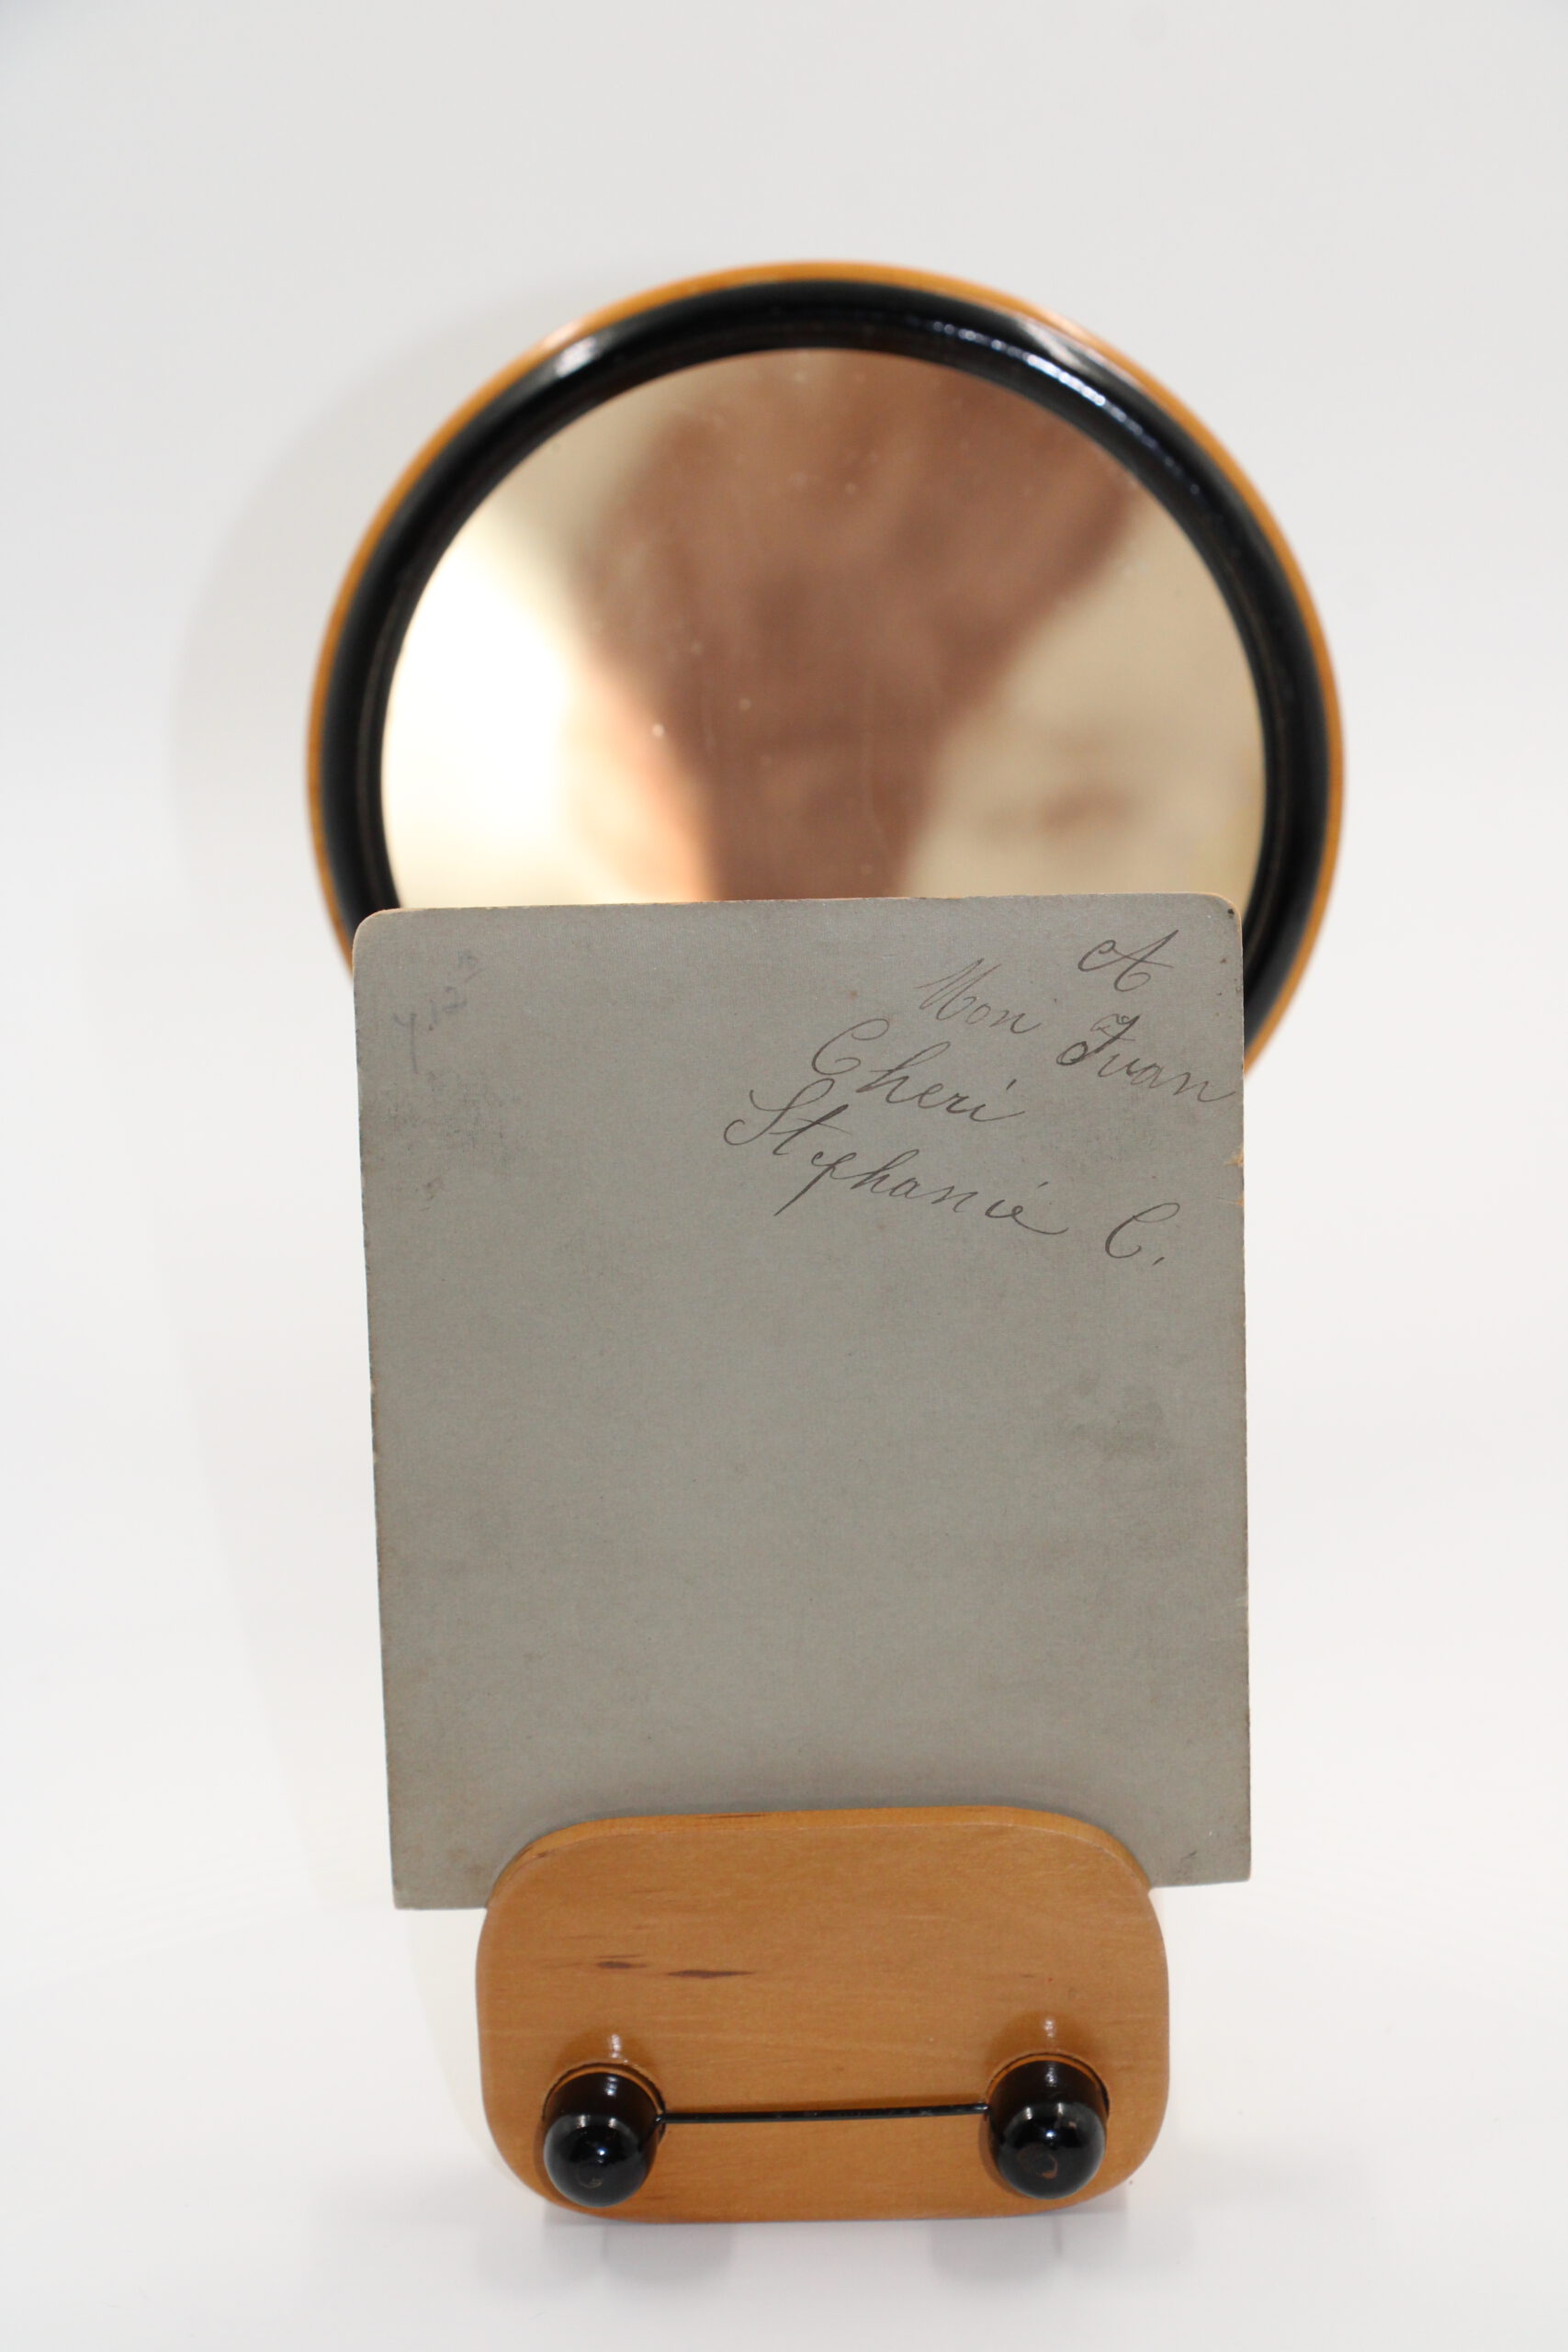 A
Mon Juan
Cheri
Stephanie C.